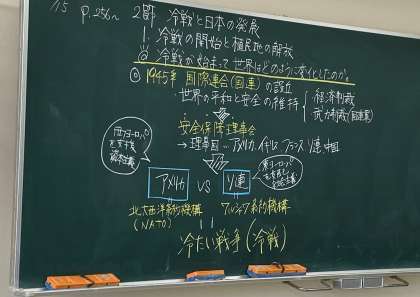 15 P.256〜 2節 冷戦と日本の発展
1. 冷戦の開始と植民地の解放
◎ 冷戦が始まって世界はどのように変化したのか。
◎ 1945年 国際連合(国連)の設立
・世界の平和と安全の維持 { 経済制裁
武力制裁(国連軍)
安全保障理事会
→ 理事国…アメリカ、イギリス、フランス、ソ連、中国
西ヨーロッパ
を支援
資本主義
アメリカ VS ソ連
東ヨーロッパ
を支配
北大西洋条約機構
(NATO)
ワルシャワ条約機構
冷たい戦争(冷戦)